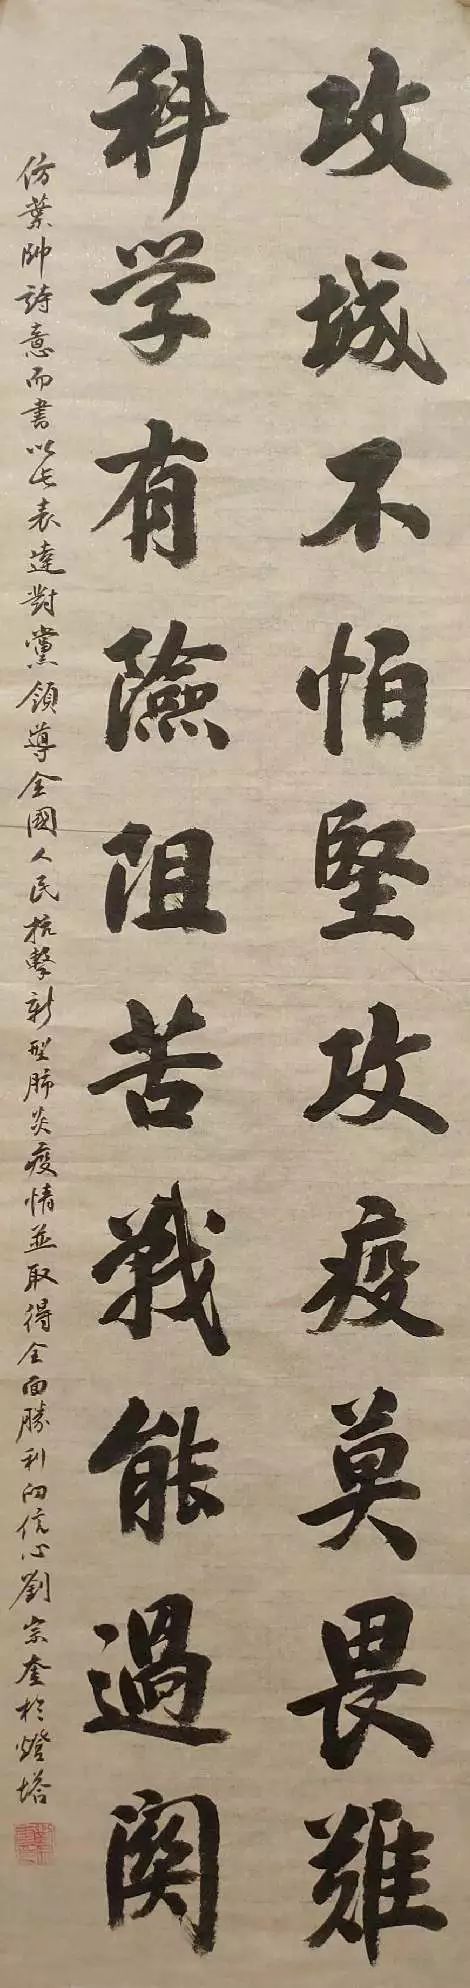 攻城不怕堅攻疫莫畏難
科学有險阻苦戰能過関
仿葉帥詩意而書以此表達對黨領導全國人民抗擊新型肺炎疫情並取得全面勝利的信心劉宗奎於燈塔